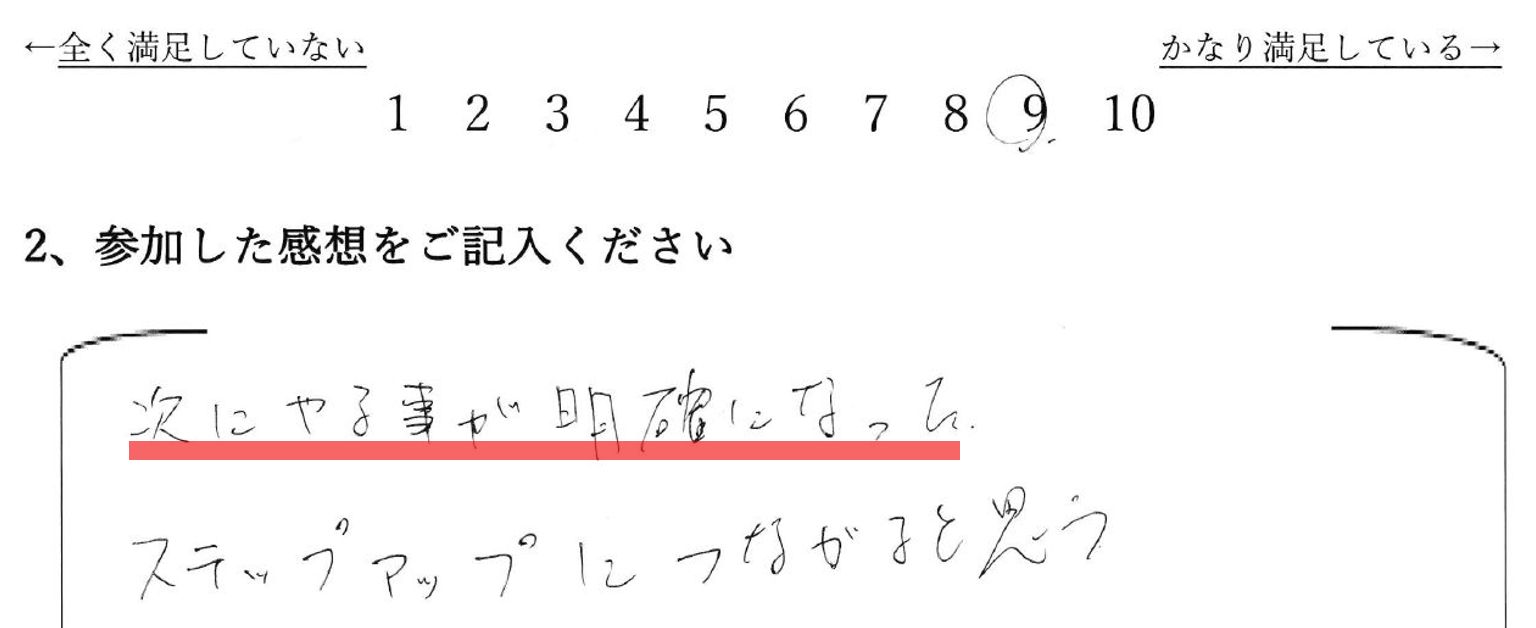 ←全く満足していない かなり満足している→
1 2 3 4 5 6 7 8 9 10
2、参加した感想をご記入ください
次にやる事が明確になった.
ステップアップにつながると思う